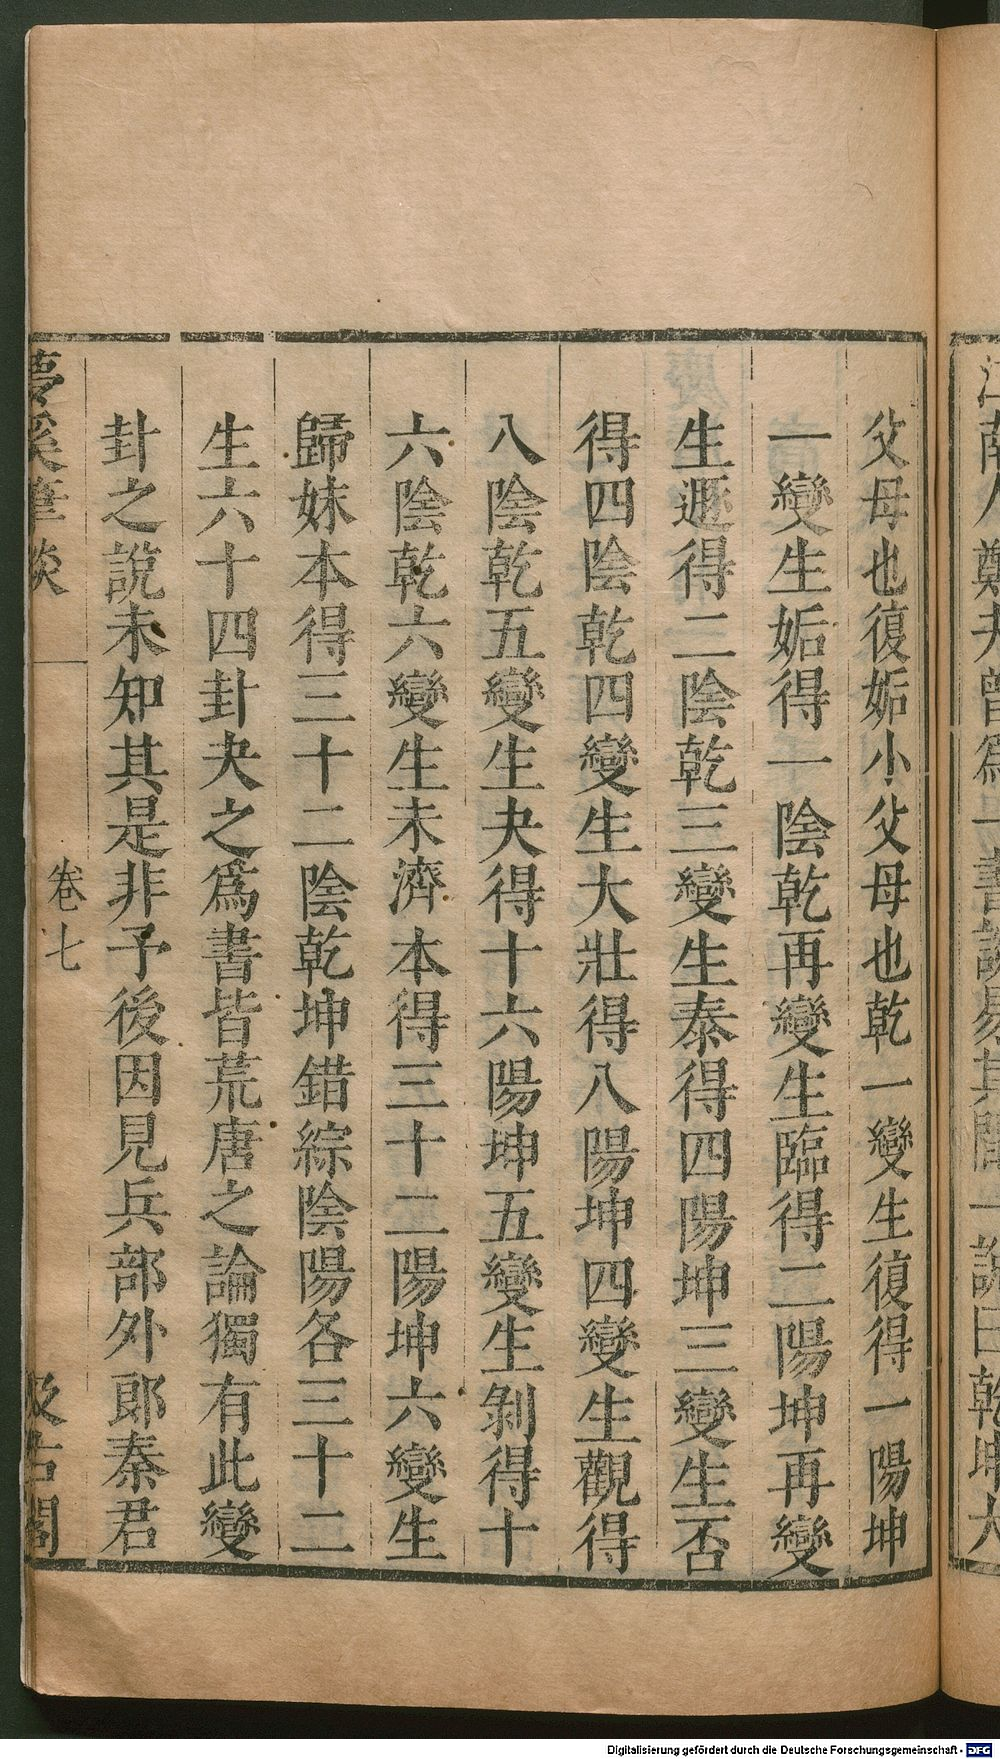 江南人鄭夬曾爲一書談易其間一說曰乾坤大
父母也復姤小父母也乾一變生復得一陽坤
一變生姤得一陰乾再變生臨得二陽坤再變
生遯得二陰乾三變生泰得四陽坤三變生否
得四陰乾四變生大壯得八陽坤四變生觀得
八陰乾五變生夬得十六陽坤五變生剝得十
六陰乾六變生未濟本得三十二陽坤六變生
歸妹本得三十二陰乾坤錯綜陰陽各三十二
生六十四卦夬之爲書皆荒唐之論獨有此變
卦之說未知其是非予後因見兵部外郎秦君
夢溪筆談
卷七
汲古閣
Digitalisierung gefördert durch die Deutsche Forschungsgemeinschaft - DFG